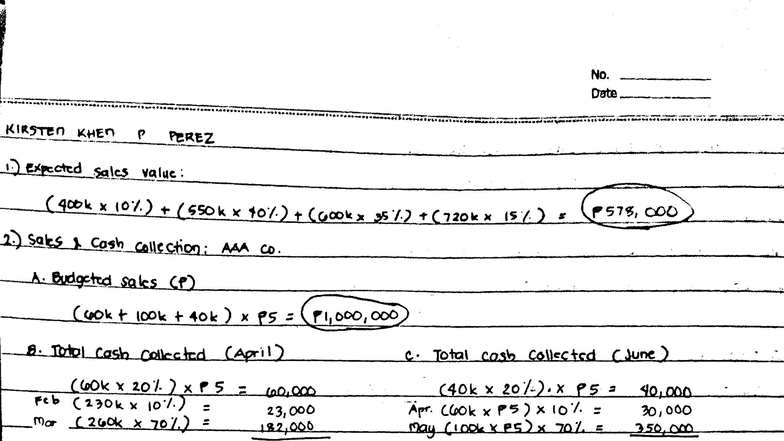 No.
Date
KIRSTEN KHEN P PEREZ
1.) Expected sales value:
(400k x 10%) + (550k x 40%) + (600k x 35%) + (720k x 15%) = ₱578,000
2.) Sales & Cash Collection; AAA Co.
A. Budgeted sales (₱)
(60k + 100k + 40k) x ₱5 = ₱1,000,000
B. Total Cash Collected (April)
(60k x 20%) x ₱5 = 60,000
Feb (230k x 10%) = 23,000
Mar (260k x 70%) = 182,000
C. Total Cash Collected (June)
(40k x 20%) x ₱5 = 40,000
Apr. (60k x ₱5) x 10% = 30,000
May (100k x ₱5) x 70% = 350,000